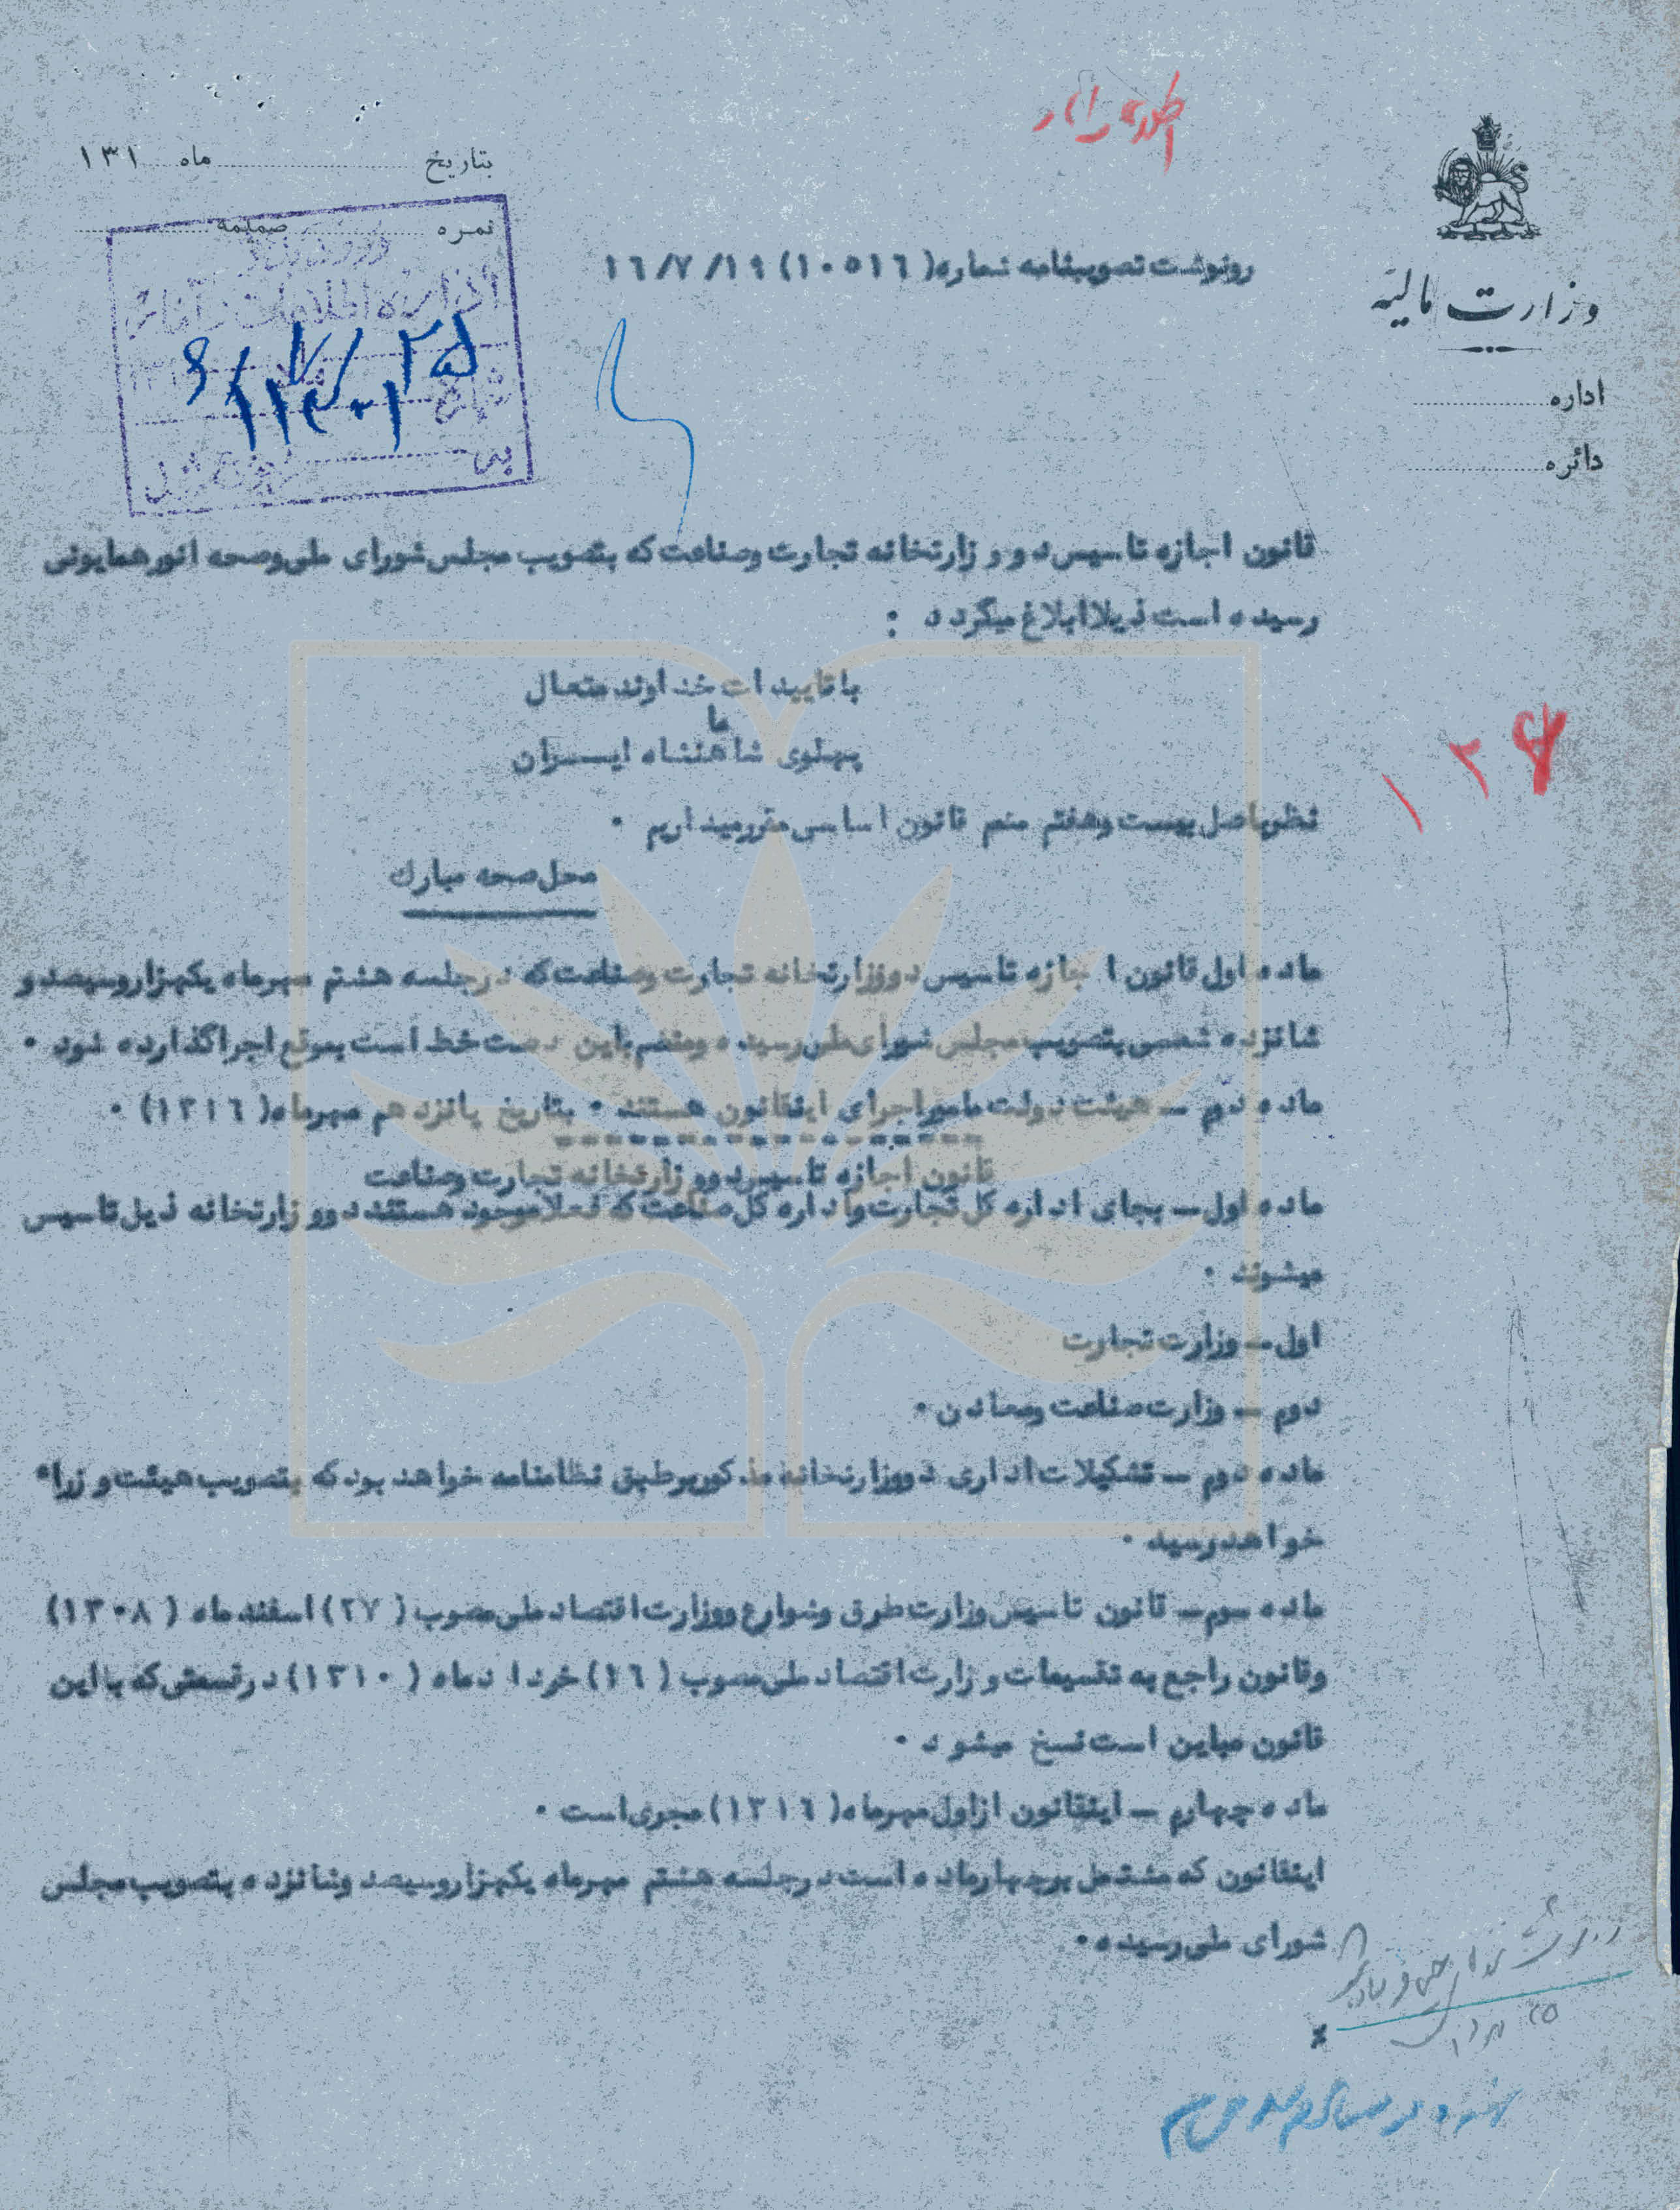 وزارت مالیه
اداره
دائره
بتاریخ ماه ۱۳۱
نمره ضمیمه
رونوشت تصویبنامه شماره (۱۰۵۱۶) ۱۶/۷/۱۹
قانون اجازه تاسیس دو وزارتخانه تجارت وصناعت که بتصویب مجلس شورای ملی وصحه انور همایونی
رسیده است ذیلا ابلاغ میگردد :
با تاییدات خداوند متعال
ما
پهلوی شاهنشاه ایران
نظر باصل بیست وهفتم متمم قانون اساسی مقرر میداریم ۰
محل صحه مبارك
ماده اول قانون اجازه تاسیس دووزارتخانه تجارت وصناعت که درجلسه هشتم مهرماه یکهزاروسیصدو
شانزده شمسی بتصویب مجلس شورای ملی رسیده ومنضم باین دست خط است بموقع اجرا گذارده شود ۰
ماده دوم ـ هیئت دولت مامور اجرای اینقانون هستند ۰ بتاریخ پانزدهم مهرماه (۱۳۱۶) ۰
قانون اجازه تاسیس دوو زارتخانه تجارت وصناعت
ماده اول ـ بجای اداره کل تجارت واداره کل صناعت که فعلا موجود هستند دوو زارتخانه ذیل تاسیس
میشوند ۰
اول ـ وزارت تجارت
دوم ـ وزارت صناعت ومعادن ۰
ماده دوم ـ تشکیلات اداری دووزارتخانه مذکور برطبق نظامنامه خواهد بود که بتصویب هیئت وزراء
خواهد رسید ۰
ماده سوم ـ قانون تاسیس وزارت طرق وشوارع ووزارت اقتصاد ملی مصوب (۲۷) اسفند ماه (۱۳۰۸)
وقانون راجع به تقسیمات وزارت اقتصاد ملی مصوب (۱۶) خرداد ماه (۱۳۱۰) در قسمتی که با این
قانون مباین است نسخ میشود ۰
ماده چهارم ـ اینقانون ازاول مهرماه (۱۳۱۶) مجری است ۰
اینقانون که مشتمل برچهارماده است درجلسه هشتم مهرماه یکهزاروسیصد وشانزده بتصویب مجلس
شورای ملی رسیده ۰
۱۲۶